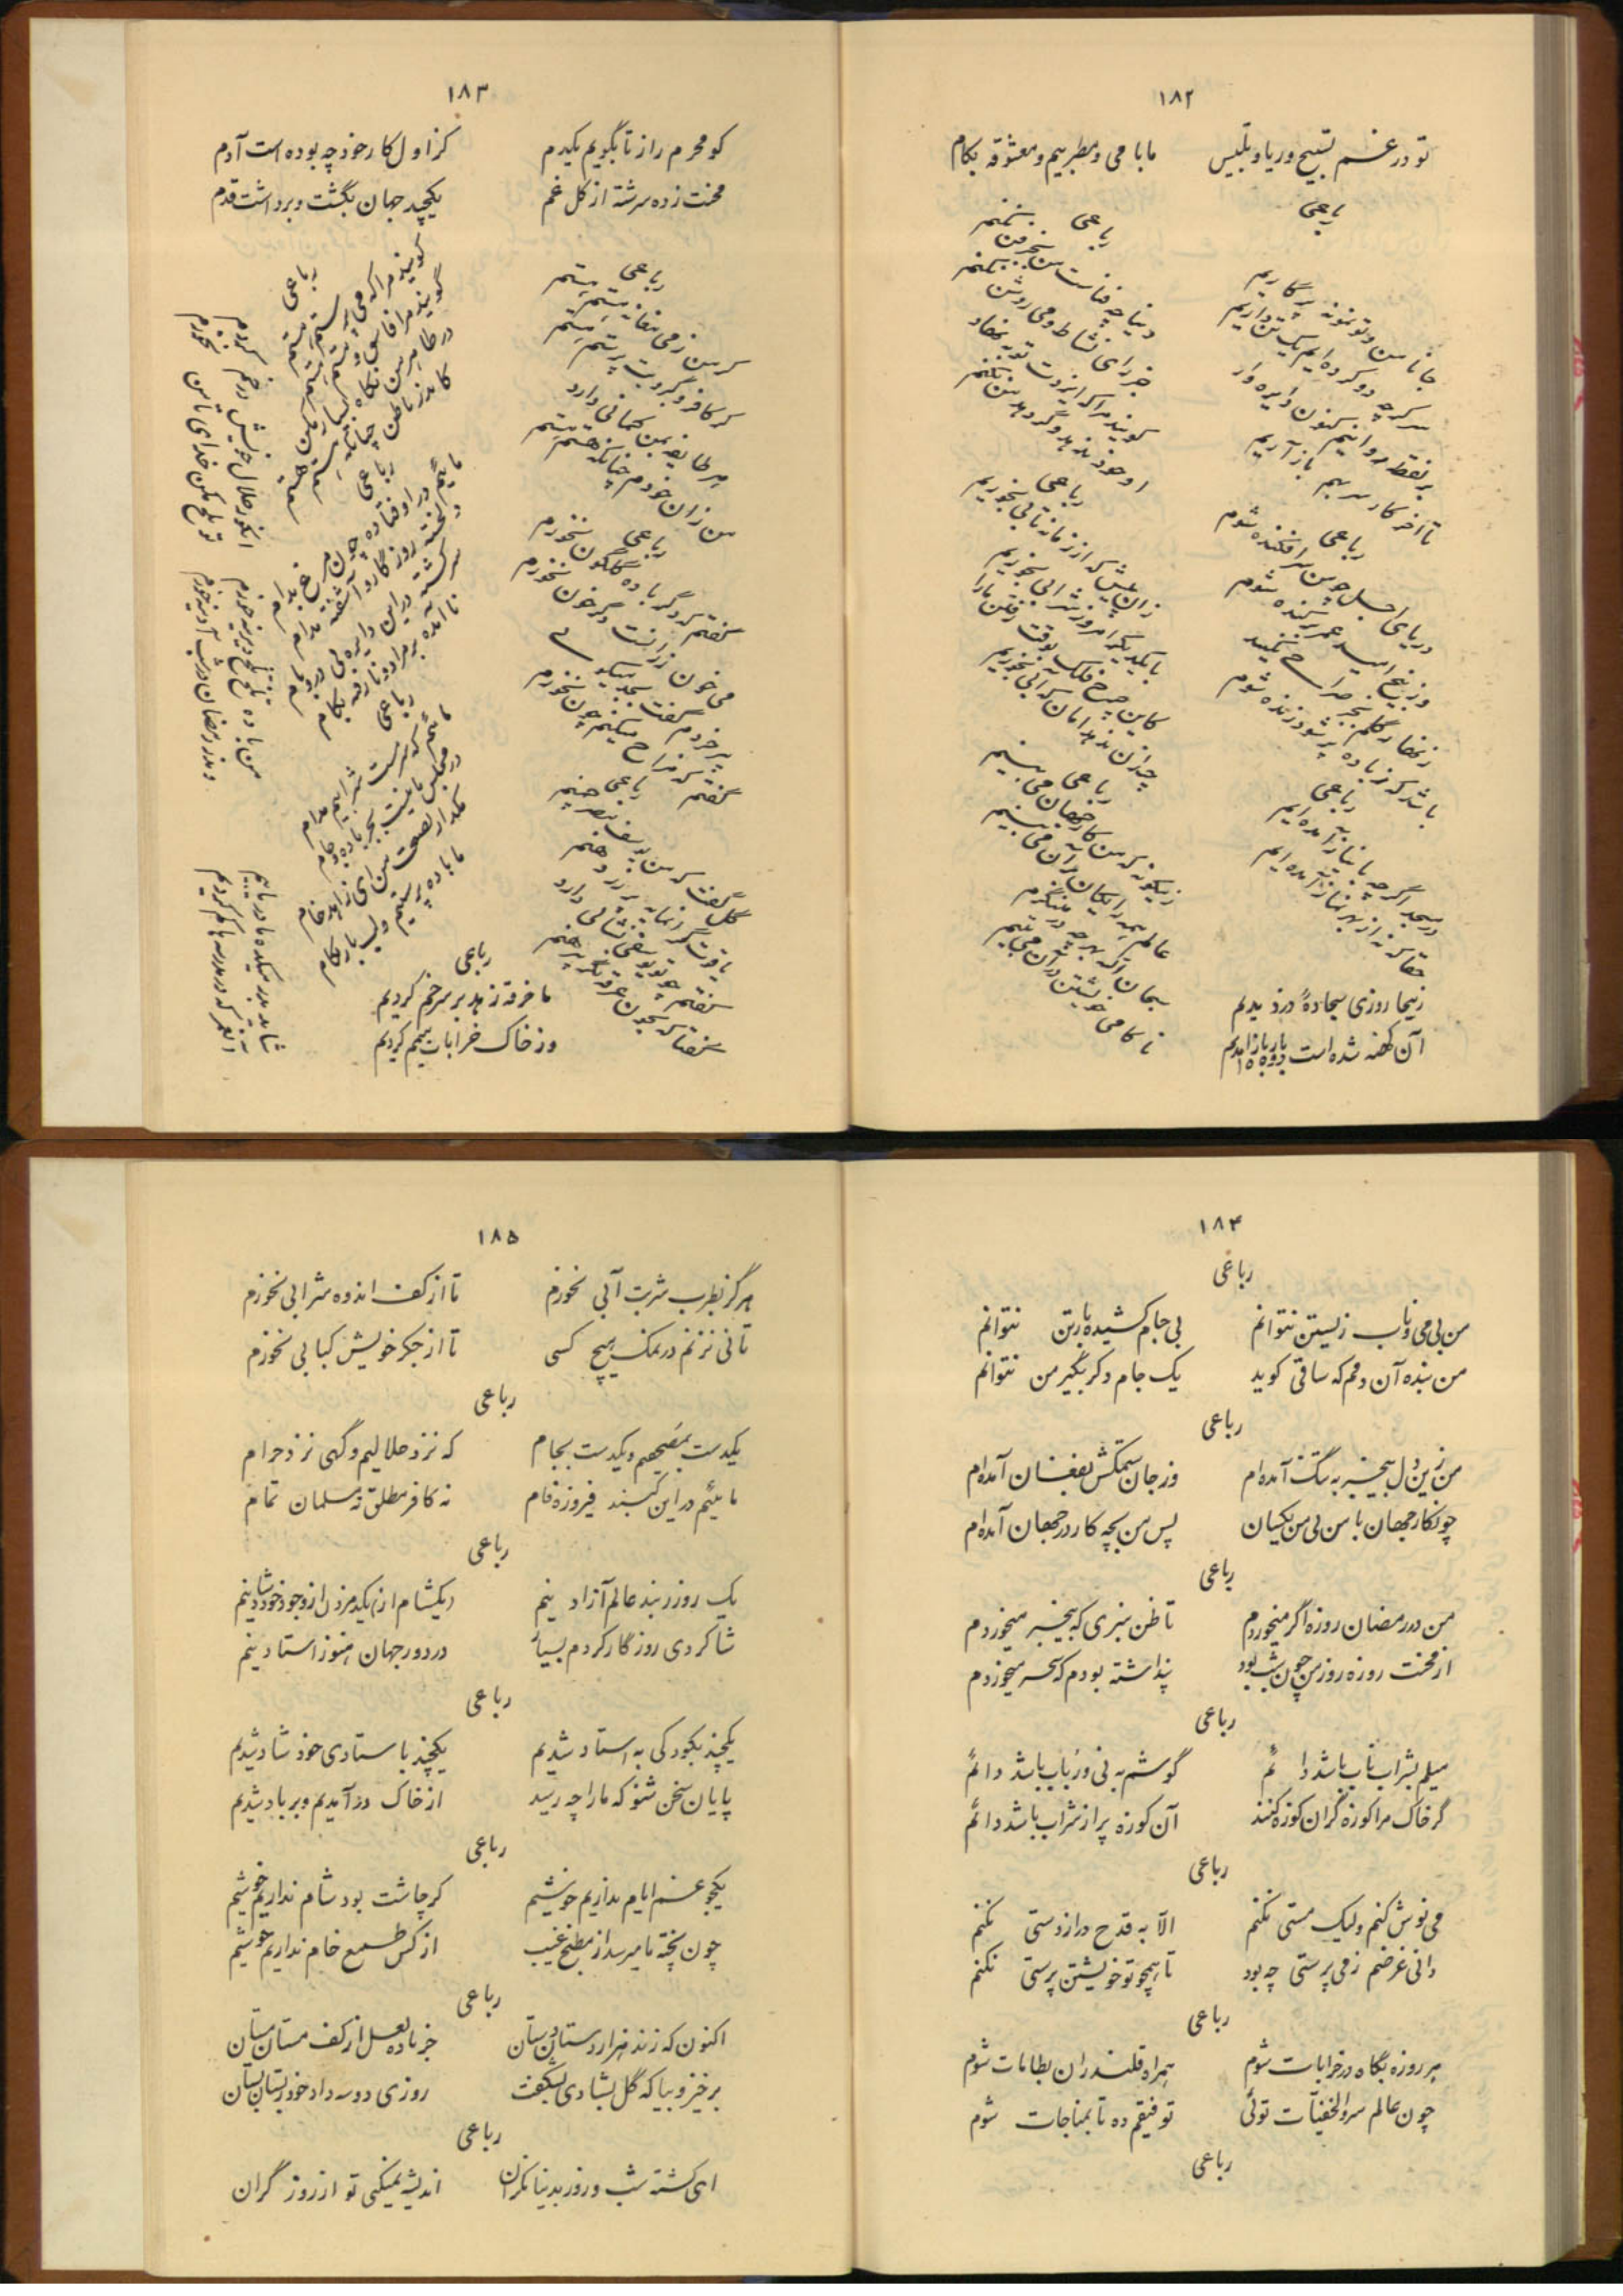 ۱۸۲
تو در غم تسبیح و ریا و تلبیس ما با می و مطربیم و معشوقه بکام
رباعی
جانا من و تو نمونه پرگاریم
سر گرچه دو کرده‌ایم یک تن داریم
بر نقطه روانیم کنون دایره وار
تا آخر کار سر بهم باز آریم
رباعی
در پای اجل چو من سرافکنده شوم
وز بیخ امید عمر برکنده شوم
زنهار گلم بجز صراحی نکنید
باشد که ز باده پر شود زنده شوم
رباعی
در مسجد اگرچه با نیاز آمده‌ایم
حقا که نه از بهر نماز آمده‌ایم
زینجا روزی سجادهٔ دزدیدیم
آن کهنه شده است باز باز آمدیم
رباعی
دنیا چو فناست من بجز فن نکنم
جز رای نشاط و می روشن نکنم
گویند مرا که ایزدت توبه دهاد
او خود ندهد وگر دهد من نکنم
رباعی
زان پیش که از زمانه تابی بخوریم
با یکدیگر امروز شرابی بخوریم
کاین چرخ فلک بوقت رفتن ما را
چندان ندهد امان که آبی بخوریم
رباعی
زینگونه که من کار جهان می بینم
عالم همه رایگان بر آن می بینم
سبحان الله بهر چه در مینگرم
ناکامی خویشتن در آن می بینم
۱۸۳
کو محرم راز تا بگویم یکدم کز اول کار خود چه بوده است آدم
محنت زده سرشته از گل غم یکچند جهان بگشت و برداشت قدم
رباعی
گر من ز می مغانه مستم هستم
گر کافر و گبر و بت پرستم هستم
هر طایفه بمن گمانی دارد
من زان خودم چنانکه هستم هستم
رباعی
گفتم که دگر باده گلگون نخورم
می خون رزانست دگر خون نخورم
پیر خردم گفت بجد میگوئی
گفتم که مزاح میکنم چون نخورم
رباعی
گل گفت که من یوسف مصر چمنم
یاقوت گرانمایه پر زر دهنم
گفتم چو تو یوسفی نشانی دارد
گفتا که بخون غرقه نگر پیرهنم
رباعی
گویند مرا که می پرستم هستم
گویند مرا فاسق و مستم هستم
در ظاهر من نگاه بسیار مکن
کاندر باطن چنانکه هستم هستم
رباعی
مائیم در اوفتاده چون مرغ بدام
دلخسته روزگار و آشفته مدام
سرگشته در این دایره بی در و بام
نا آمده بر مراد و نارفته بکام
رباعی
مائیم که سرمست شرابیم مدام
در مجلس ما نیست بجز باده و جام
بگذار نصیحت من ای زاهد خام
ما باده پرستیم و لب یار بکام
رباعی
ما خرقه زهد بر سر خم کردیم
وز خاک خرابات تیمم کردیم
شاید بدر میکده ها دریابیم
آن عمر که در مدرسه ها گم کردیم
من باده تلخ تلخ دیرینه خورم
واندر رمضان در شب آدینه خورم
انگور حلال خویش در خم کردم
تو تلخ مکن خدای تا من نخورم
۱۸۴
رباعی
من بی می ناب زیستن نتوانم بی جام کشیده بار تن نتوانم
من بنده آن دمم که ساقی گوید یک جام دگر بگیر من نتوانم
رباعی
من زین دل بیخبر به تنگ آمده‌ام وز جان ستمکش بفغان آمده‌ام
چونکار جهان با من بی من یکسان پس من بچه کار در جهان آمده‌ام
رباعی
من در رمضان روزه اگر میخوردم تا ظن نبری که بیخبر میخوردم
از محنت روزه روز من چون شب بود پنداشته بودم که سحر میخوردم
رباعی
میلم بشراب ناب باشد دائم گوشم به نی و رباب باشد دائم
گر خاک مرا کوزه گران کوزه کنند آن کوزه پر از شراب باشد دائم
رباعی
می نوش کنم ولیک مستی نکنم الا به قدح دراز دستی نکنم
دانی غرضم ز می پرستی چه بود تا همچو تو خویشتن پرستی نکنم
رباعی
هر روزه بگاه در خرابات شوم همراه قلندران بطامات شوم
چون عالم سر و الخفیات توئی توفیقم ده تا بمناجات شوم
رباعی
۱۸۵
هرگز بطرب شربت آبی نخورم تا از کف اندوه شرابی نخورم
نانی نزنم در نمک هیچ کسی تا از جگر خویش کبابی نخورم
رباعی
یکدست بمصحفیم و یکدست بجام که نزد حلالیم و گهی نزد حرام
مائیم در این گنبد فیروزه فام نه کافر مطلق نه مسلمان تمام
رباعی
یک روز ز بند عالم آزاد نیم یکدم زدن از وجود خود شاد نیم
شاگردی روزگار کردم بسیار در دور جهان هنوز استاد نیم
رباعی
یکچند بکودکی به استاد شدیم یکچند باستادی خود شاد شدیم
پایان سخن شنو که ما را چه رسید از خاک در آمدیم و بر باد شدیم
رباعی
یکجو غم ایام نداریم خوشیم گر چاشت بود شام نداریم خوشیم
چون پخته بما میرسد از مطبخ غیب از کس طمع خام نداریم خوشیم
رباعی
اکنون که زند هزار دستان دستان جز باده لعل از کف مستان مستان
برخیز و بیا که گل بشادی بشکفت روزی دو سه داد خود ز بستان بستان
رباعی
ای گشته شب و روز بدنیا نگران اندیشه نمیکنی تو از روز گران